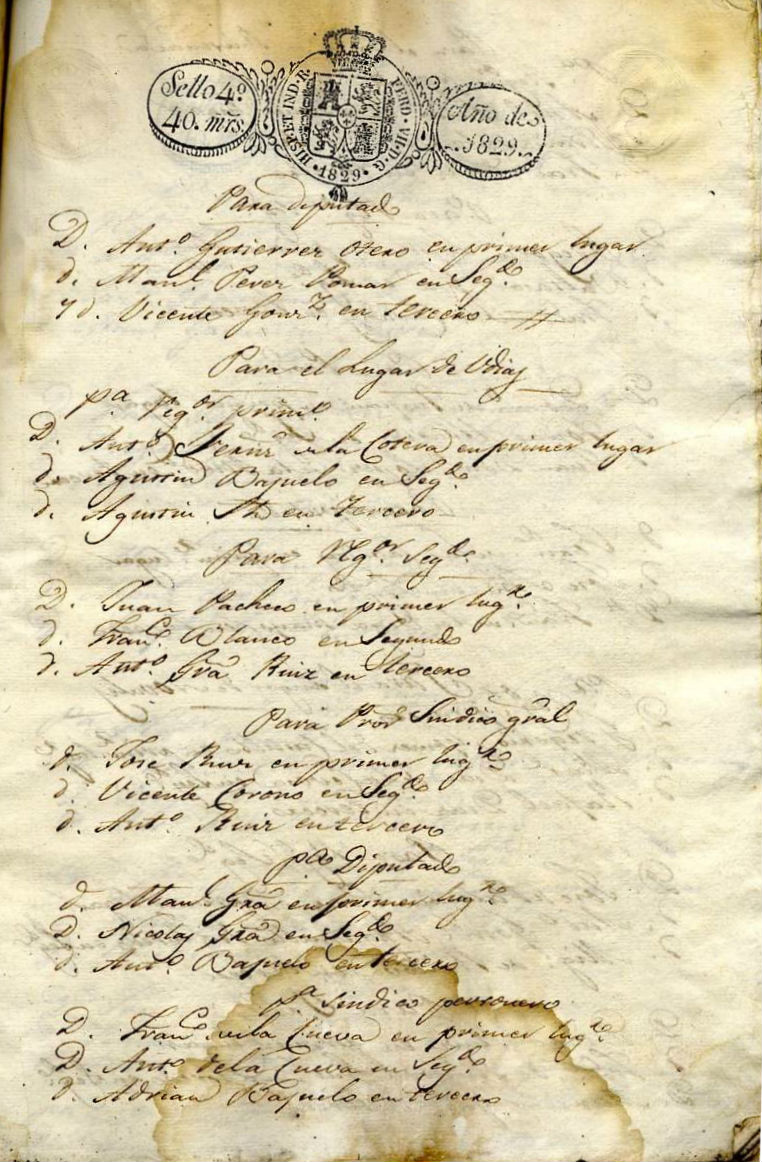 Sello 4º
40. mrs
HISP. ET IND. R. FERD. VII. D. G.
1829
Año de
1829.
Para diputado
D. Antº Gutierrez Otero en primer lugar
d. Manl. Perez Pomar en Segdo
y d. Vicente Gonz. en tercero
Para el Lugar de Udias
pa Regor primo
D. Anto de la Cotera en primer lugar
d. Agustin Bajuelo en Segdo
d. Agustin en tercero
Para Rgor Segdo
D. Juan Pacheco en primer lugr
d. Franco Blanco en Segundo
d. Anto Gra Ruiz en tercero
Para Pror Sindico gral
d. Jose Ruiz en primer lugr
d. Vicente Corono en Segdo
d. Anto Ruiz en tercero
pa Diputado
d. Manl Gra en primer lugr
D. Nicolas Gra en Segdo
d. Anto Bajuelo en tercero
pa Sindico personero
D. Franco de la Cueva en primer lugr
D. Anto de la Cueva en Segdo
d. Adrian Bajuelo en tercero